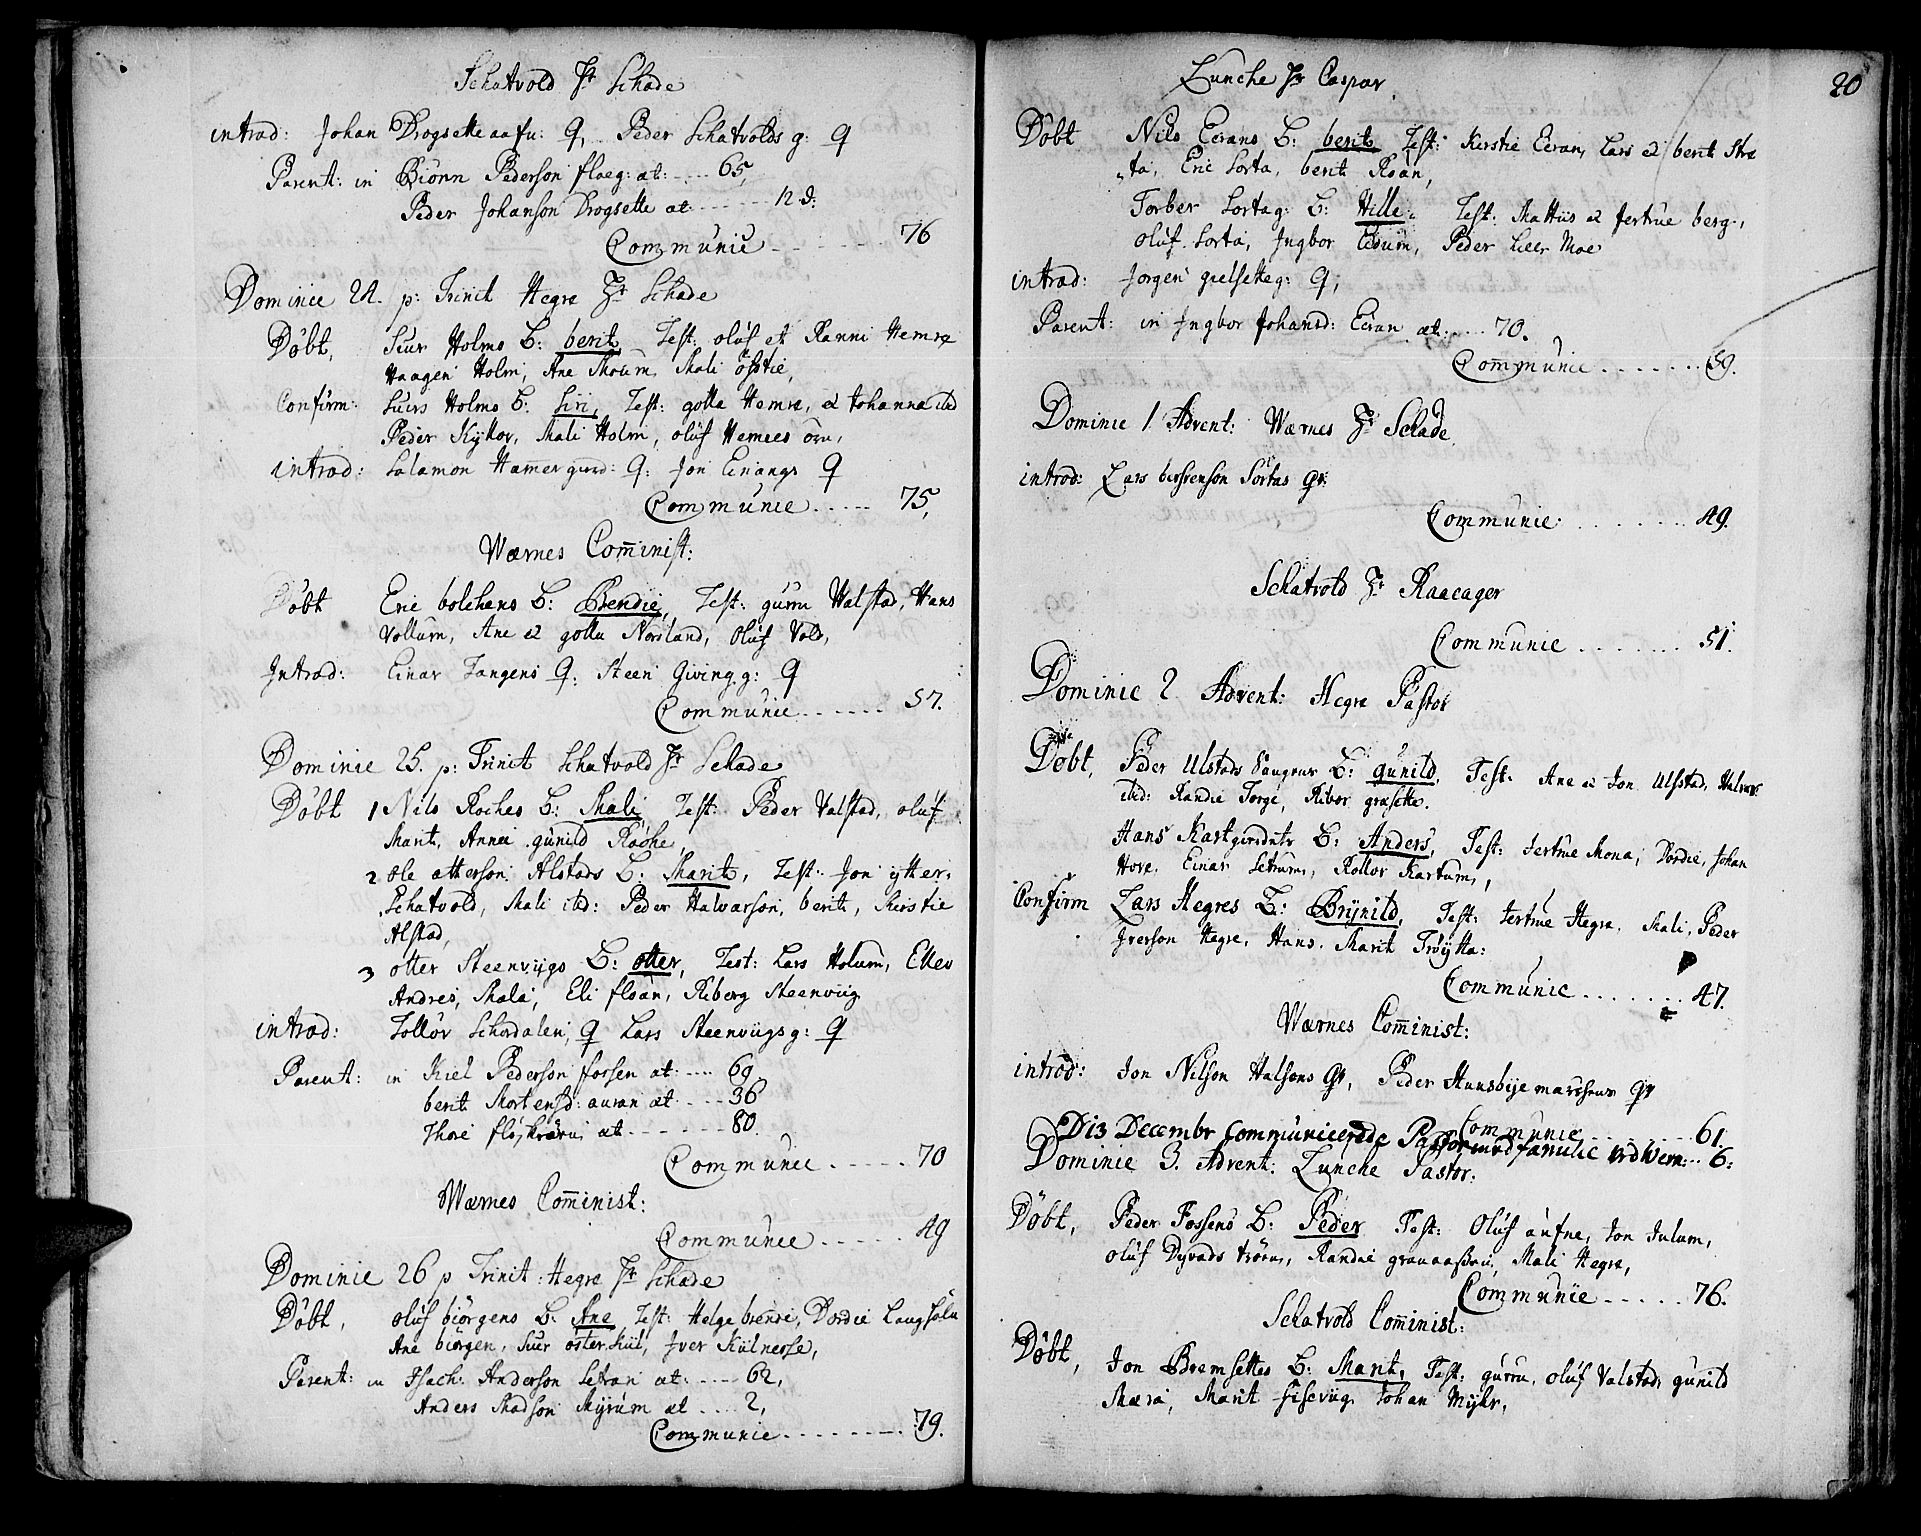 Schatvold Hr Schade
introd: Johan Drogsetteaafu: Q, Peder Schatvolds g: Q
Parent: in Biönn Pederson floeg: æt: 65,
Peder Johanson Drogsette æt 12 d:
Communic 76
Dominic 24. p: Trinit Hegre Hr Schade
Döbt, Siur Holms B: berit Test: oluf et Ranni Hemre
Haagen Holm, Ane Moum, Mali östie,
Confirm: Siurs Holms B: Siri, Test: golla Hemre, et Johanna ibd
Peder Kyllor, Mali Holm, oluf Hemres örn,
introd: Salamon Hamer gierd: Q: Jon Einangs Q
Communic 75,
Wærnes Cominist:
Döbt Eric bolchens B: Bendic, Test: gurru Valstad, Hans
Vollum, Ane et golla Norsland, Oluf Vold,
Introd: Einar Tangens Q: Steen Giving g: Q
Communic 57.
Dominic 25. p: Trinit Schatvold Hr Schade
Döbt 1 Nils Roches B: Mali, Test: Peder Valstad, oluf
Marit, Annei gunild Röche,
2 ole otterson Alstads B: Marit, Test: Jon ytter
Schatvold, Mali ibd: Peder Halvarson, berit, Kirstie
Alstad,
3 otter Steenvigs B: otter, Test: Lars Holum, Ellev
Andres, Mala, Eli floan, Riberg Steenviig
introd: Tollör Schordalen, Q Lars Steenviigs g: Q
Parent: in Kiel Pederson forsen æt: 69
berit Mortensd: auran æt 36
Thore flöjkrörn, æt 80.
Communic 70
Wærnes Cominist:
Communic 49
Dominic 26 p Trinit: Hegre Hr Schade
Döbt, oluf biörgens B: Ane Test: Helge brende, Dordie Langsöln
Ane biörgen, Siur österkiil, Iver Kulnesse,
Parent: in Isach Anderson Setran æt 62,
Anders Madson Myrum æt 2,
Communic 79.
20
Lunche Hr Caspar
Döbt Nils Eerans B: berit Test: Kirstie Eeran, Lars et berit Stræ
ta, Eric Sorta, berit Roan,
Torber Sorta g: B: Hille Test: Mattis et Jertrue berg,
oluf Sorta, Ingbor Eium, Peder Moe
introd: Jorgen gielsetteg: Q;
Parent: in Ingbor Johansd: Eeran æt: 70.
Communic 59.
Dominic 1 Advent: Wærnes Hr Schade
introd: Lars Sörtas Qr:
Communic 49.
Schatvold Hr Raaeager
Communic 51.
Dominic 2 Advent: Hegre Pastor
Döbt, Peder Ulstads B: gunild, Test: Ane et Jon Ulstad, Halvor
ibid: Randie Torge, Ribor græsette.
Hans Kastgierdets B: Anders, Test: Jertrue Mona, Dordie, Johan
Hove, Einar Setrum, Rollov Kartum,
Confirm Lars Hegres B: Brynild, Test: Jertrue Hegre, Mali, Peder
Iverson Hegre, Hans, Marit Tröytta:
Communic 47.
Wærnes Cominist:
introd: Jon Nilson Halsens Qr, Peder Hunsbye Qr
Communic 61.
D 13 Decembr Communicerede Pastor med familie ved Wern: 6:
Dominic 3. Advent: Lunche Pastor:
Döbt, Peder Fossens B: Peder Test: Oluf aufne, Jon Julum,
oluf Dyvads tröen, Randie Mali Hegre,
Communic 76.
Schatvold Cominist:
Döbt, Jon Bremsettes B: Marit, Test: gurru, oluf Valstad, gunild
Mæra, Marit fiseviig Johan Myhr,